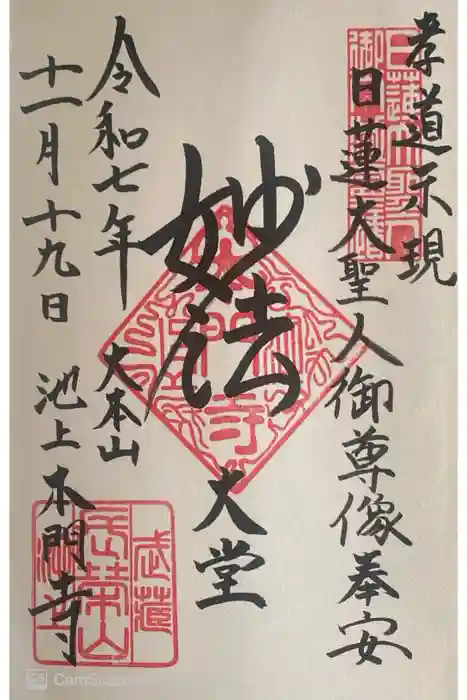 孝道示現
日蓮大聖人御尊像奉安
妙法
大堂
令和七年
十一月十九日
大本山
池上本門寺
長栄山
武蔵
CamScanner